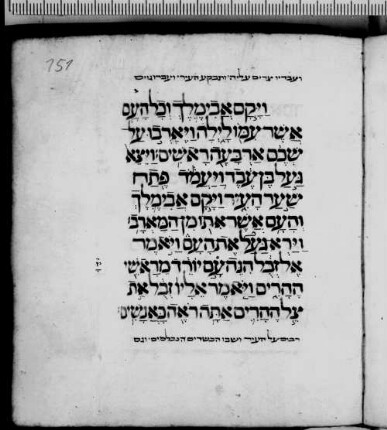 151
צרים עליה ותבקע העיר
וַיָּקָם אֲבִימֶלֶךְ וְכָל הָעָם
אֲשֶׁר עִמּוֹ לָיְלָה וַיֶּאֶרְבוּ עַל
שְׁכֶם אַרְבָּעָה רָאשִׁים׃ וַיֵּצֵא
גַּעַל בֶּן עֶבֶד וַיַּעֲמֹד פֶּתַח
שַׁעַר הָעִיר וַיָּקָם אֲבִימֶלֶךְ
וְהָעָם אֲשֶׁר אִתּוֹ מִן הַמַּאְרָב׃
וַיַּרְא גַּעַל אֶת הָעָם וַיֹּאמֶר
אֶל זְבֻל הִנֵּה עָם יוֹרֵד מֵרָאשֵׁי
הֶהָרִים וַיֹּאמֶר אֵלָיו זְבֻל אֵת
צֵל הֶהָרִים אַתָּה רֹאֶה כָּאֲנָשִׁים׃
על העיר הכשדים הנלחמים